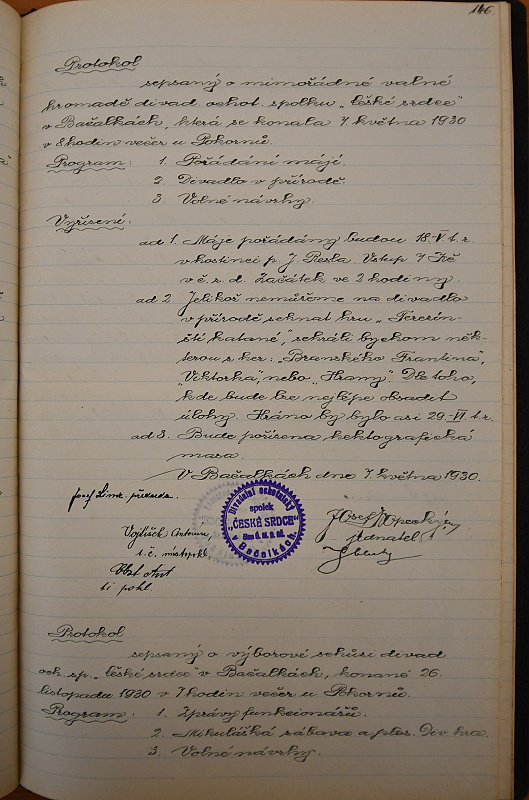 146.
Protokol
sepsaný o mimořádné valné
hromadě divad. ochot. spolku „České srdce"
v Bačalkách, která se konala 7. května 1930
v 8 hodin večer u Pokornů.
Program: 1. Pořádání májí.
2. Divadlo v přírodě.
3. Volné návrhy.
Vyřízení:
ad 1. Máje pořádány budou 18. V. t. r.
v hostinci p. J. Resla. Vstup 7 Kč
v č. s. d. Začátek ve 2 hodiny.
ad 2. Jelikož nemůžeme na divadlo
v přírodě sehnat hru „Terezín-
ští katané", sehráli bychom něk-
terou z her: „Branského Frantina",
„Viktorka", nebo „Hrany". Dle toho,
kde bude lze nejlépe obsadit
úlohy. Hráno by bylo asi 29. VI. t. r.
ad 3. Bude pořízena hektografická
masa.
V Bačalkách dne 7. května 1930.
Josef
Divadelní ochotnický
spolek
„ČESKÉ SRDCE"
v Bačalkách.
Vojtíšek Antonín
t. č.
Josef
jednatel
Ant
Protokol
sepsaný o výborové schůzi divad.
och. sp. „České srdce" v Bačalkách, konané 26.
listopadu 1930 v 7 hodin večer u Pokornů.
Program: 1. Zprávy funkcionářů.
2. Mikulášká zábava a ples. Div. hra.
3. Volné návrhy.